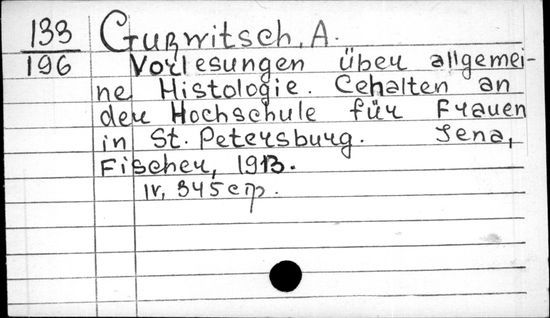 133 Gurwitsch, A.
196 Vorlesungen über allgemei-
ne Histologie. Gehalten an
der Hochschule für Frauen
in St. Petersburg. Jena,
Fischer, 1913.
IV, 345 стр.